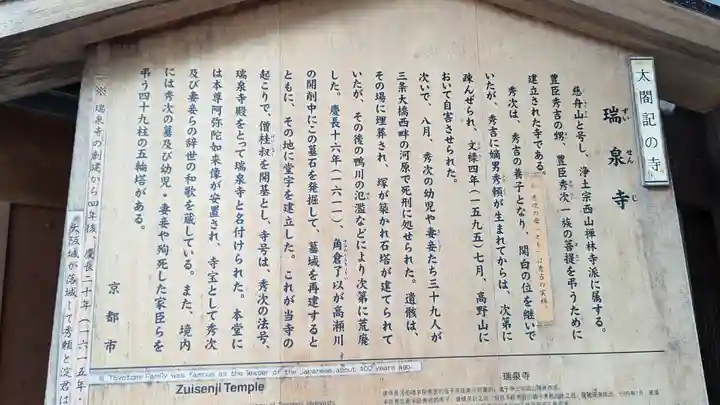 太閤記の寺
瑞泉寺
ずい せん じ
慈舟山と号し、浄土宗西山禅林寺派に属する。
豊臣秀吉の甥、豊臣秀次一族の菩提を弔うために
建立された寺である。
※秀次の母「とも」は秀吉の実姉
秀次は、秀吉の養子となり、関白の位を継いで
いたが、秀吉に嫡男秀頼が生まれてからは、次第に
疎んぜられ、文禄四年(一五九五)七月、高野山に
おいて自害させられた。
次いで、八月、秀次の幼児や妻妾たち三十九人が
三条大橋西畔の河原で死刑に処せられた。遺骸は、
その場に埋葬され、塚が築かれ石塔が建てられて
いたが、その後の鴨川の氾濫などにより次第に荒廃
した。慶長十六年(一六一一)、角倉了以が高瀬川
の開削中にこの墓石を発掘して、墓域を再建すると
ともに、その地に堂宇を建立した。これが当寺の
起こりで、僧桂叔を開基とし、寺号は、秀次の法号、
瑞泉寺殿をとって瑞泉寺と名付けられた。本堂に
は本尊阿弥陀如来像が安置され、寺宝として秀次
及び妻妾らの辞世の和歌を蔵している。また、境内
には秀次の墓及び幼児・妻妾や殉死した家臣らを
弔う四十九柱の五輪塔がある。
京都市
※瑞泉寺の創建から四年後、慶長二十年(一六一五年・
大阪城が落城して秀頼と淀君は
※ Toyotomi Family was famous as the leader of the Japanese about 400 years ago.
Zuisenji Temple
瑞泉寺